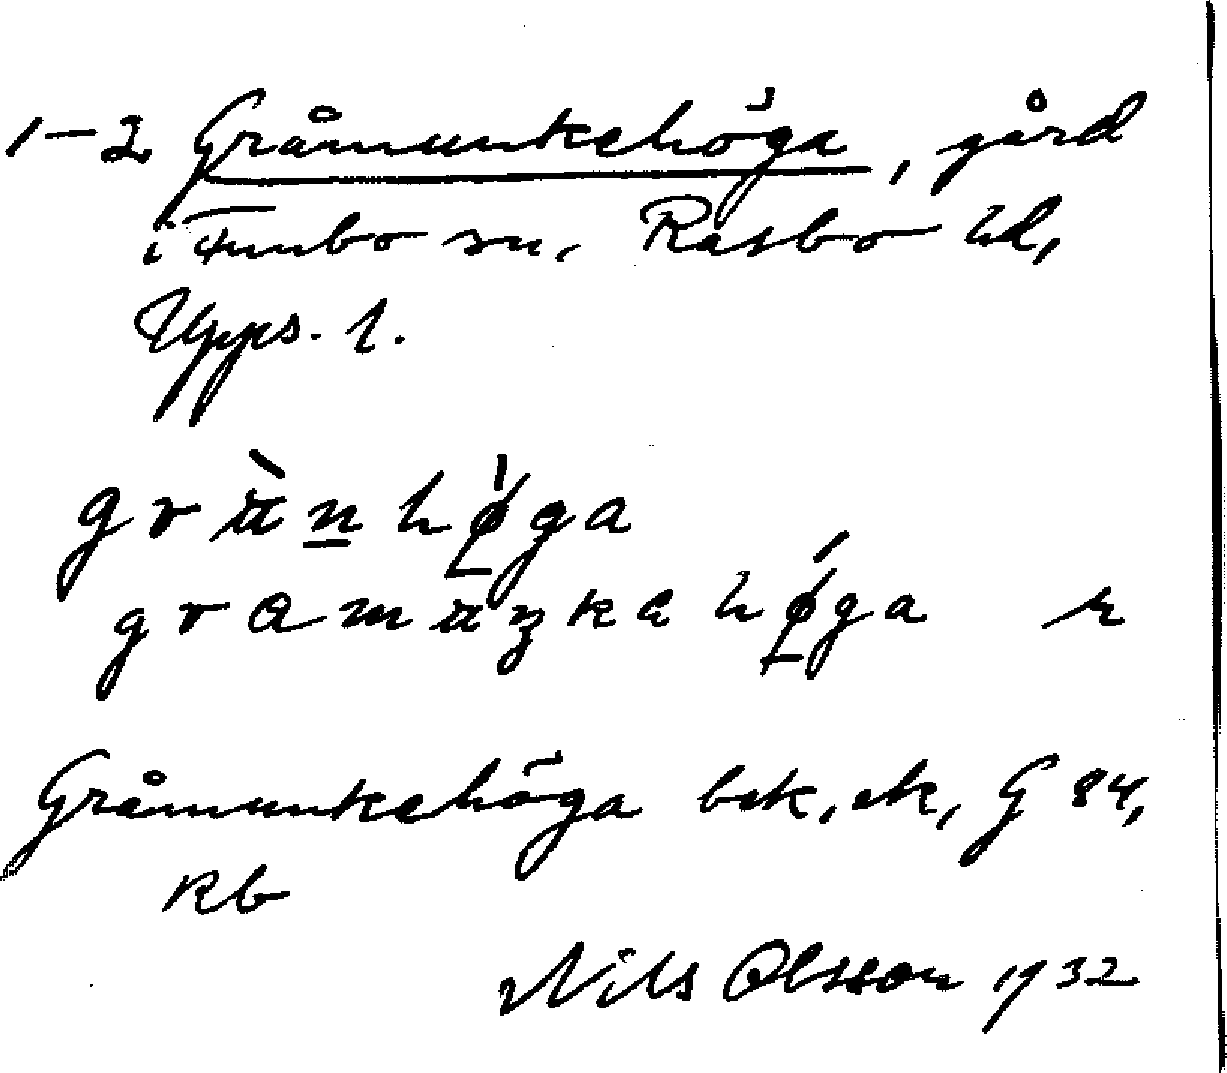 1–2 Gråmunkehöga, gård
i Funbo sn, Rasbo hd,
Upps. l.
Gråmunkehöga bek, ek, G 84,
Rb
Nils Olsson 1932